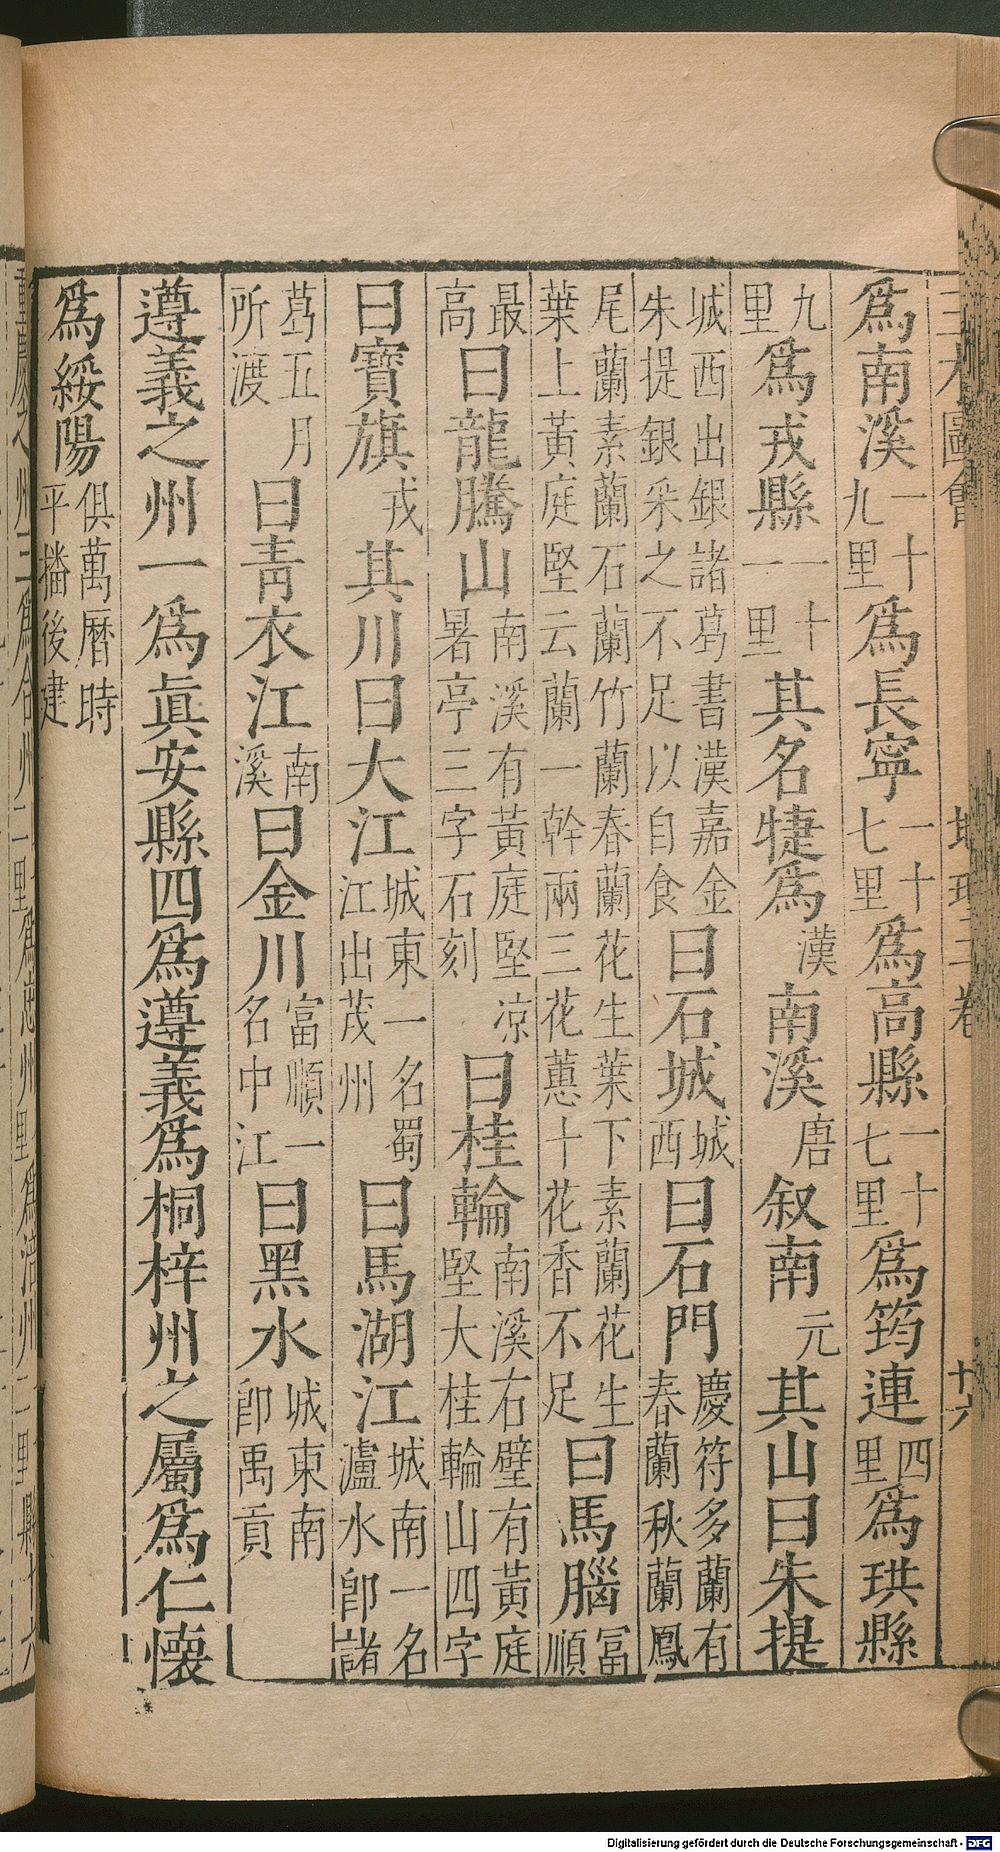 三才圖會 地理三卷 十六
爲南溪一十九里爲長寧一十七里爲高縣一十七里爲筠連四里爲珙縣
九里爲戎縣一十一里其名犍爲漢南溪唐叙南元其山曰朱提
城西出銀諸葛書漢嘉金朱提銀采之不足以自食曰石城城西曰石門慶符多蘭有春蘭秋蘭鳳
尾蘭素蘭石蘭竹蘭春蘭花生葉下素蘭花生葉上黃庭堅云蘭一幹兩三花蕙十花香不足曰馬腦冨順
最高曰龍騰山南溪有黃庭堅凉暑亭三字石刻曰桂輪南溪右壁有黃庭堅大桂輪山四字
曰寶旗戎其川曰大江城東一名蜀江出茂州曰馬湖江城南一名瀘水卽諸
葛五月所渡曰靑衣江南溪曰金川富順一名中江曰黑水城東南卽禹貢
遵義之州一爲眞安縣四爲遵義爲桐梓州之屬爲仁懷
爲綏陽俱萬曆時平播後建
Digitalisierung gefördert durch die Deutsche Forschungsgemeinschaft - DFG